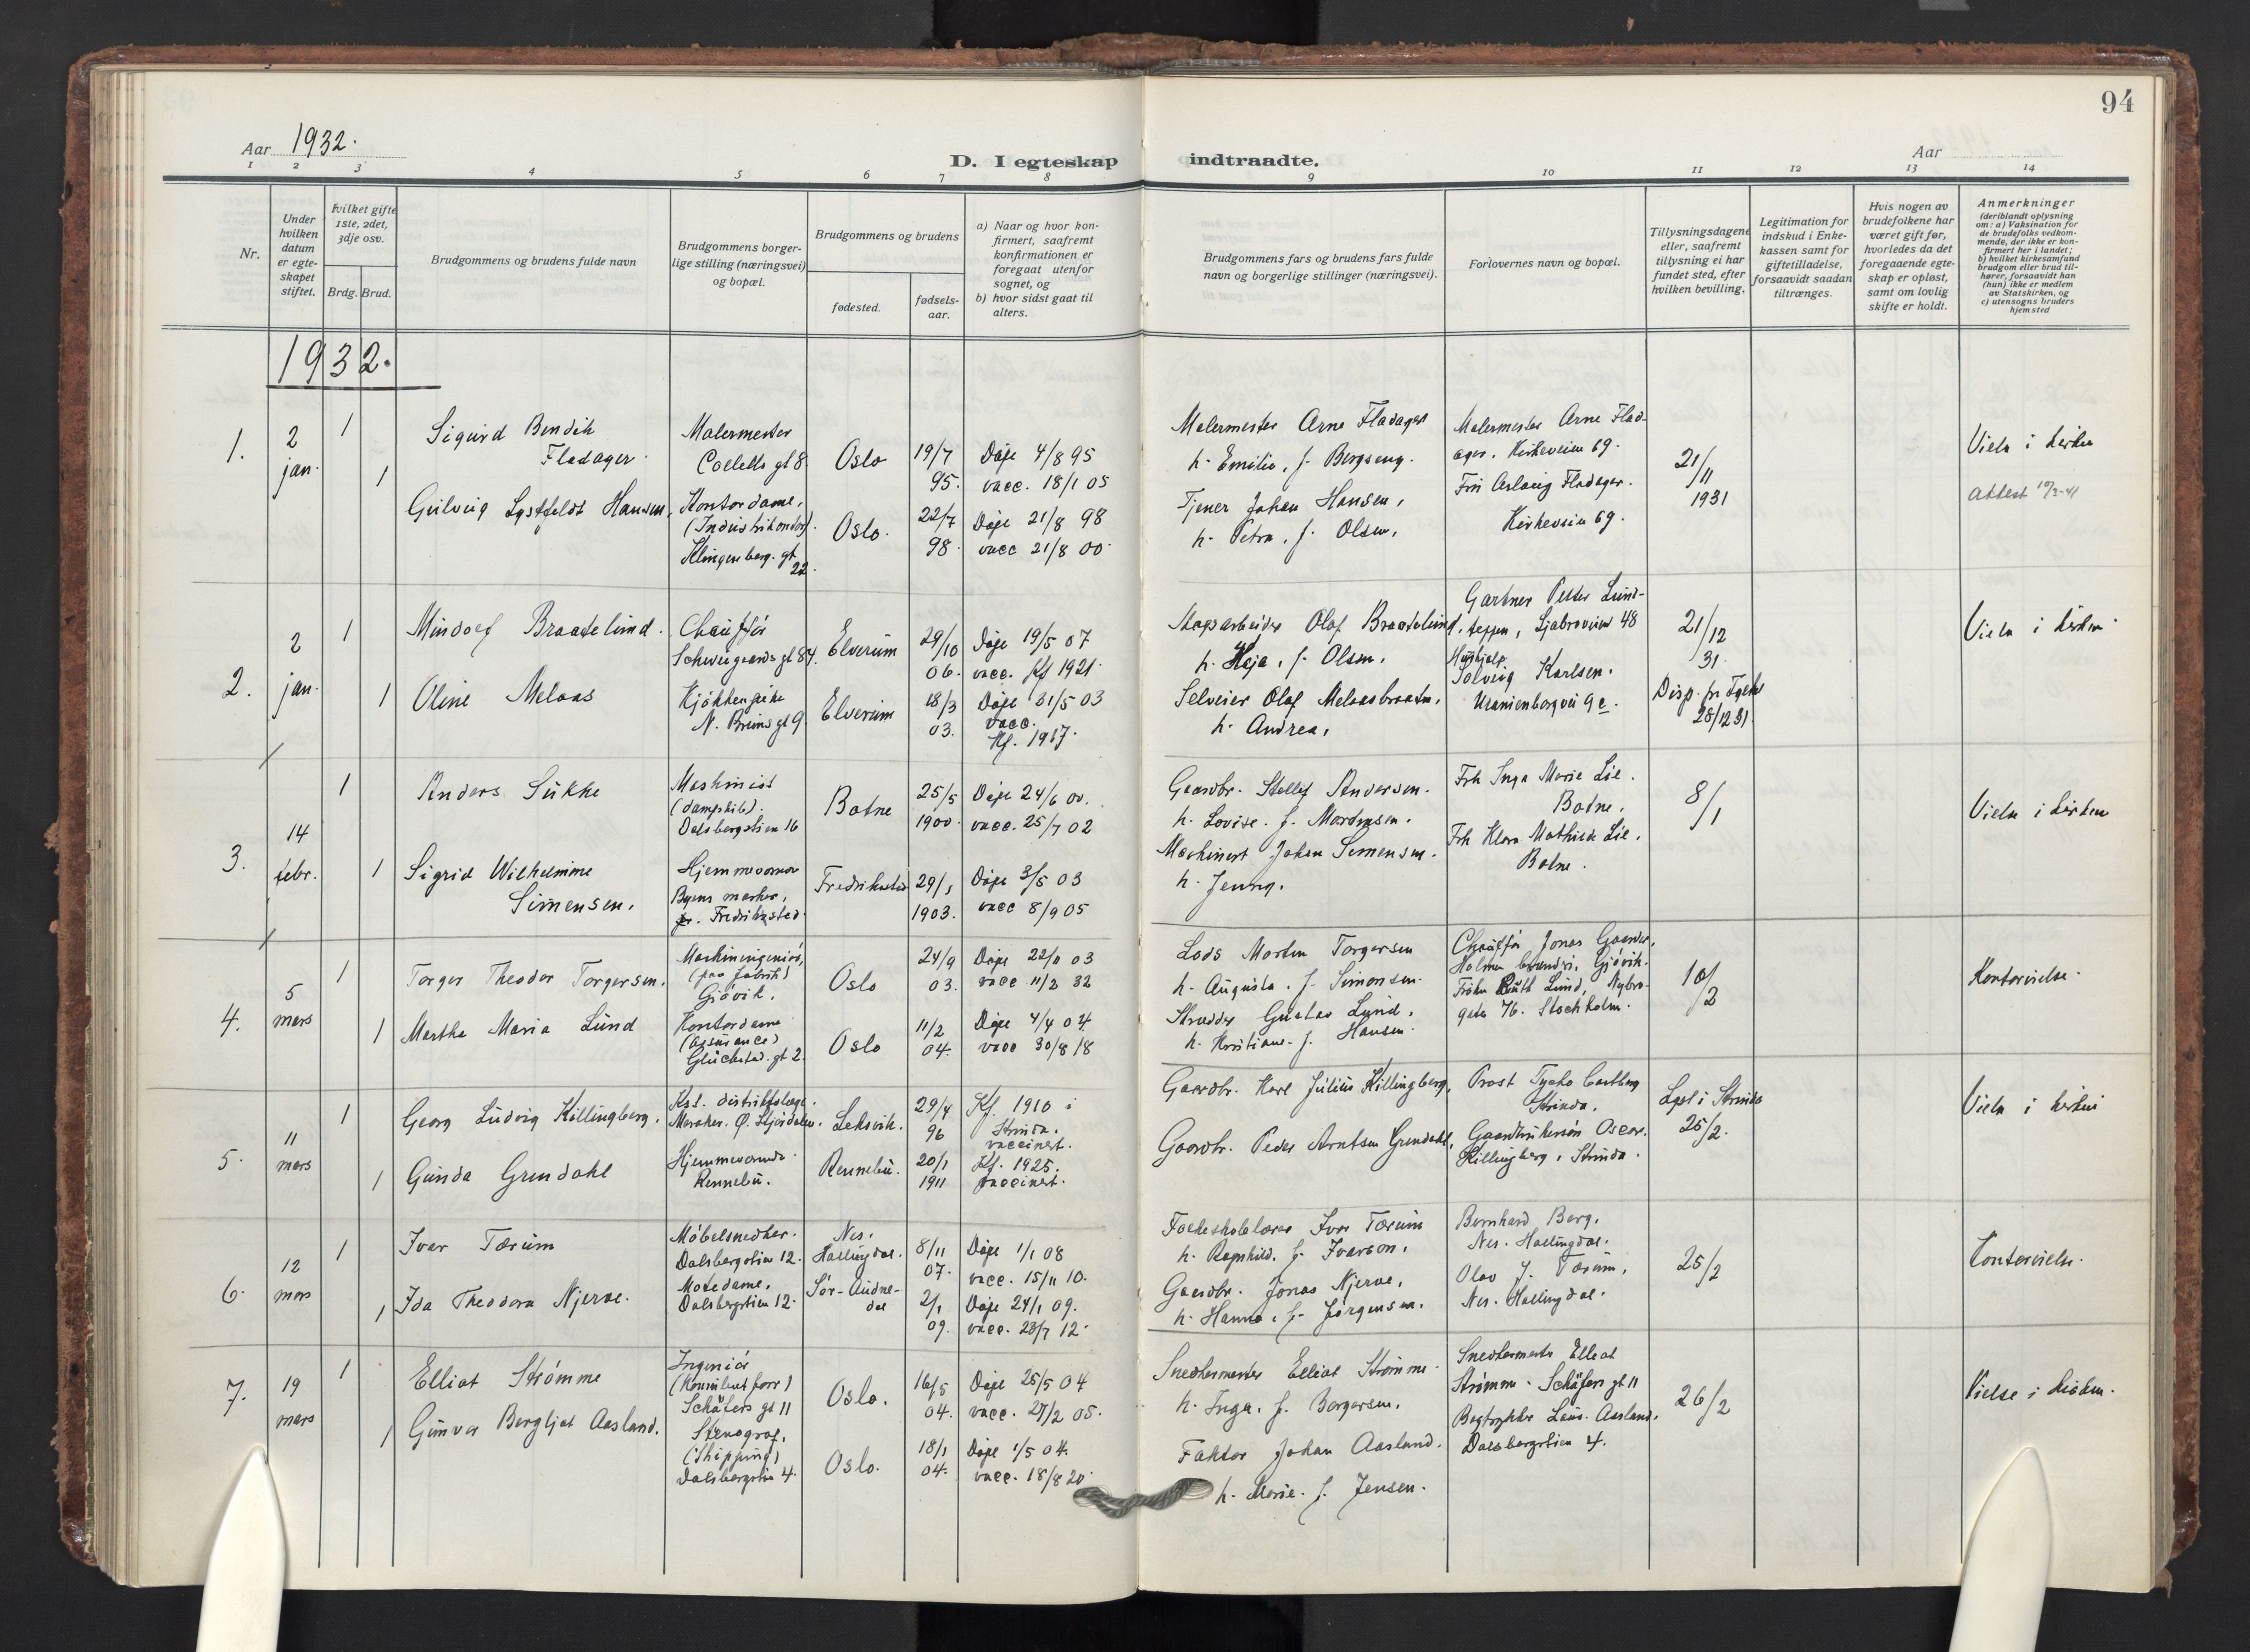 94
Aar 1932.
D. I egteskap
indtraadte.
Aar
1 2 3 4 5 6 7 8 9 10 11 12 13 14
Nr.
Under
hvilken
datum
er egte-
skapet
stiftet.
hvilket gifte
1ste, 2det,
3dje osv.
Brdg. Brud.
Brudgommens og brudens fulde navn
Brudgommens borger-
lige stilling (næringsvei)
og bopæl.
Brudgommens og brudens
fødested.
fødsels-
aar.
a) Naar og hvor kon-
firmert, saafremt
konfirmationen er
foregaat utenfor
sognet, og
b) hvor sidst gaat til
alters.
Brudgommens fars og brudens fars fulde
navn og borgerlige stillinger (næringsvei).
Forlovernes navn og bopæl.
Tillysningsdagene
eller, saafremt
tillysning ei har
fundet sted, efter
hvilken bevilling.
Legitimation for
indskud i Enke-
kassen samt for
giftetilladelse,
forsaavidt saadan
tiltrænges.
Hvis nogen av
brudefolkene har
været gift før,
hvorledes da det
foregaaende egte-
skap er opløst,
samt om lovlig
skifte er holdt.
Anmerkninger
(deriblandt oplysning
om: a) Vaksination for
de brudefolks vedkom-
mende, der ikke er kon-
firmert her i landet;
b) hvilket kirkesamfund
brudgom eller brud til-
hører, forsaavidt han
(hun) ikke er medlem
av Statskirken, og
c) utensogns bruders
hjemsted
1932.
1.
2
jan.
1
1
Sigurd Bendik
Fladager.
Gulvig Lystfeldt Hansen.
Malermester
Colletts gt 8
Kontordame,
(Industrikontor).
Klingenberg. gt
22.
Oslo
Oslo.
19/7
95.
22/7
98.
Døpt 4/8 95
vacc. 18/1 05
Døpt 21/8 98
vacc 21/8 00.
Malermester Arne Fladager
h. Emilie, f. Bergseng.
Tjener Johan Hansen,
h. Petra, f. Olsen.
Malermester Arne Flad-
ager, Kirkeveien 69.
Frk Aslaug Fladager.
Kirkeveien 69.
21/11
1931
Vielse i kirken
attest
2.
2
jan.
1
1
Mindolf Braatelund.
Oline Melaas
Chauffør
Schweigaards gt 84.
Kjøkkenpike
N. Bruns gt 9
Elverum
Elverum
29/10
06.
18/3
03.
Døpt 19/5 07
vacc. Kf 1921.
Døpt 31/5 03
vacc.
Kf. 1917.
Olaf Braatelund,
h. f. Olsen.
Selveier Olaf Melaasbraaten,
h. Andrea.
Gartner Petter Lund-
teppen, Ljabroveien 48
Hushjelp
Solveig Karlsen.
Uranienborgvei 9 c.
21/12
31.
Disp. fr
28/12 31.
Vielse i kirken.
3.
14
febr.
1
1
Anders Sukke
Sigrid Wilhelmine
Simensen.
Maskinist
(dampskib).
Dalsbergstien 16
Hjemmeværende
Byens marker,
pr. Fredrikstad.
Botne
Fredrikstad
25/5
1900.
29/1
1903.
Døpt 24/6 00.
vacc. 25/7 02
Døpt 3/5 03
vacc 8/9 05
Gaardbr. Andersen.
h. Lovise. f. Mardensen.
Maskinist Johan Simensen.
h. Jenny.
Frk Inga Marie Lie.
Botne.
Frk Klara Mathilde Lie,
Botne.
8/1
Vielse i kirken
4.
5
mars
1
1
Torger Theodor Torgersen.
Martha Maria Lund
Maskiningeniør,
(paa fabrik)
Gjøvik.
Kontordame
(assurance)
Glückstad. gt 2.
Oslo
Oslo
24/9
03.
11/2
04.
Døpt 22/11 03
vacc 11/2 32
Døpt 4/4 04
vacc 30/8 18
Lods Morten Torgersen
h. Augusta. f. Simonsen.
Skrædder Gustav Lund,
h. Kristiane. f. Hansen.
Chauffør Jonas Gaarder,
Holmen brænderi, Gjøvik.
Frøken Ruth Lund, Nybro-
gata 76. Stockholm.
10/2
Kontorvielse.
5.
11
mars
1
1
Georg Ludvig Killingberg.
Gunda Grendahl
Kst. distriktslege.
Meraker. Ø. Stjørdalen.
Hjemmeværende.
Rennebu.
Leksvik.
Rennebu.
29/4
96
20/1
1911
Kf. 1910 i
Strinda.
vaccinert.
Kf. 1925.
vaccinert.
Gaardbr. Karl Julius Killingberg.
Gaardbr. Peder Arntsen Grendahl,
Prost Tycho Castberg
Strinda.
Gaardbrukersøn Oscar
Killingberg, Strinda.
Lyst i Strinda
25/2.
Vielse i kirken
6.
12
mars
1
1
Ivar Tærum
Ida Theodora Njerve.
Møbelsnedker.
Dalsbergstien 12.
Motedame.
Dalsbergstien 12.
Nes.
Hallingdal.
Sør-Audne-
dal
8/11
07.
2/1
09.
Døpt 1/1 08
vacc. 15/11 10.
Døpt 24/1 09.
vacc. 23/7 12.
Folkeskolelærer Ivar Tærum
h. Ragnhild. f. Ivarson.
Gaardbr. Jonas Njerve,
h. Hanna. f. Jørgensen.
Bernhard Berg.
Nes. Hallingdal.
Olav J. Tærum,
Nes. Hallingdal.
25/2
Kontorvielse.
7.
19
mars
1
1
Elliot Strømme
Gunvor Bergljot Aasland.
Ingeniør
(Konsulent forr)
Schäfers gt 11
Stenograf.
(Shipping)
Dalsbergstien 4.
Oslo.
Oslo.
16/5
04.
18/1
04.
Døpt 25/5 04
vacc. 27/2 05.
Døpt 1/5 04.
vacc. 18/8 20.
Snedkermester Elliot Strømme.
h. Inga. f. Borgersen.
Faktor Johan Aasland.
h. Marie. f. Jensen.
Snedkermester Elliot
Strømme. Schäfers gt 11
Bogtrykker Laur. Aasland.
Dalsbergstien 4.
26/2
Vielse i kirken.